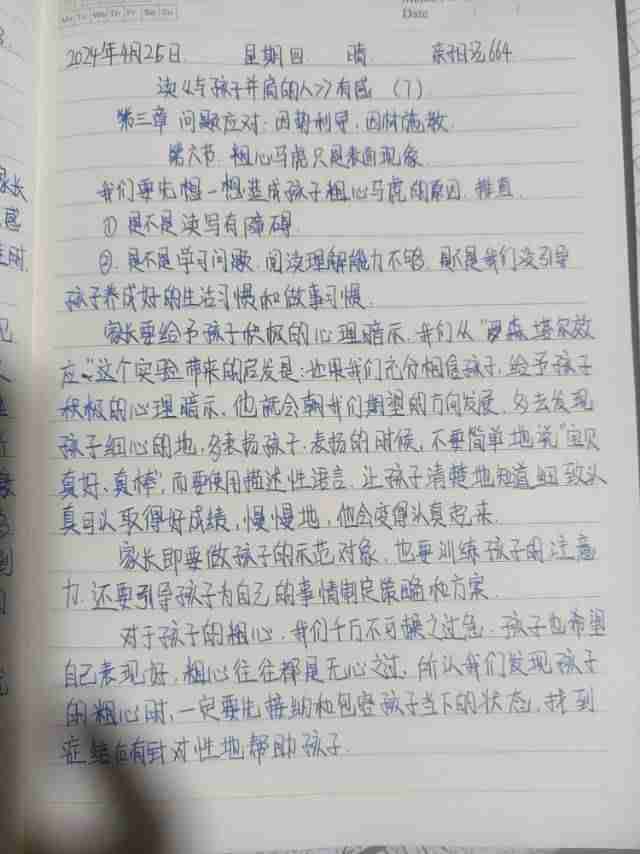 Mo Tu We Th Fr Sa Su
Date
2024年4月25日 星期四 晴 亲相冠664
读《与孩子并肩的人》有感 (7)
第三章 问题应对:因势利导,因材施教
第六节 粗心马虎只是表面现象
我们要先想一想造成孩子粗心马虎的原因.排查.
① 是不是读写有障碍.
②.是不是学习问题.阅读理解能力不够.是不是我们没引导
孩子养成好的生活习惯和做事习惯.
家长要给予孩子积极的心理暗示.我们从"罗森塔尔效
应"这个实验带来的启发是:如果我们充分相信孩子,给予孩子
积极的心理暗示,他就会朝我们期望的方向发展.多去发现
孩子细心的地,多表扬孩子.表扬的时候,不要简单地说"宝贝
真好、真棒",而要使用描述性语言.让孩子清楚地知道细致认
真可以取得好成绩,慢慢地,他会变得认真起来.
家长即要做孩子的示范对象,也要训练孩子的注意
力.还要引导孩子为自己的事情制定策略和方案.
对于孩子的粗心,我们千万不可操之过急.孩子也希望
自己表现好,粗心往往都是无心之过.所以我们发现孩子
的粗心时,一定要先接纳和包容孩子当下的状态,找到
症结在有针对性地帮助孩子.